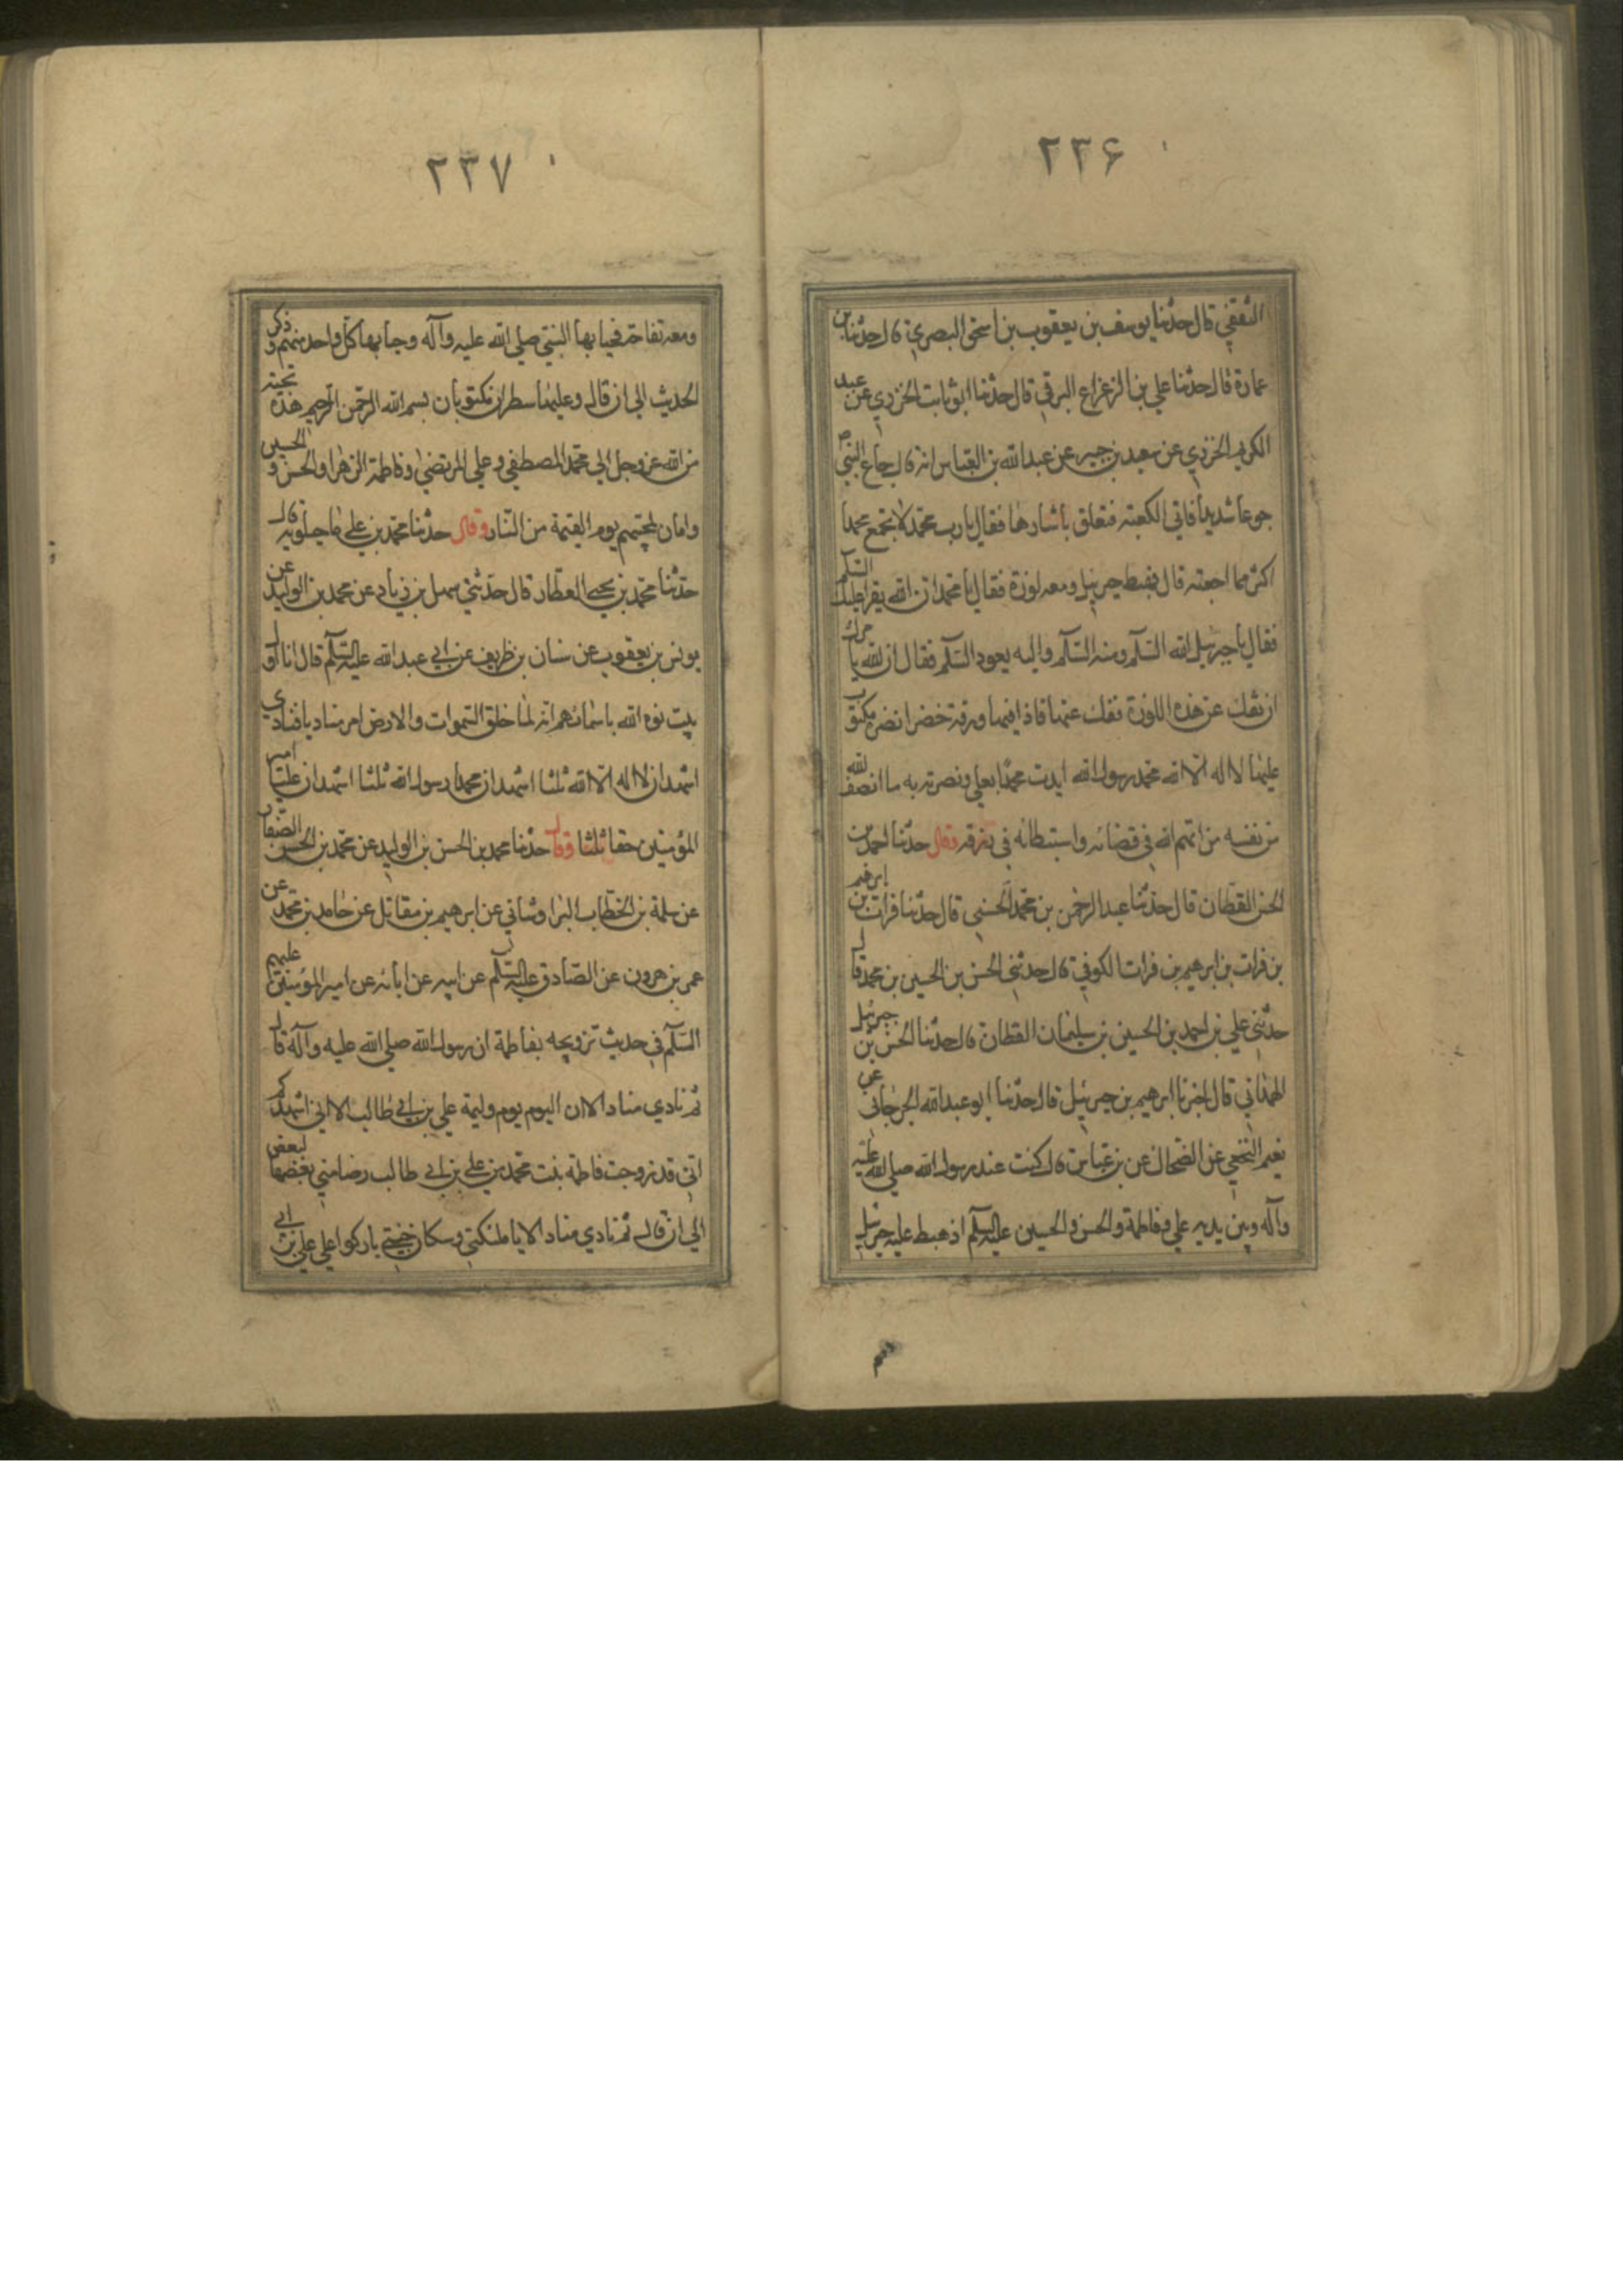 ۲۳۶
الثقفي قال حدثنا يوسف بن يعقوب بن اسحق البصري قال حدثنا بن
عمارة قال حدثنا علي بن الزعزاع البرقي قال حدثنا ابو ثابت الخزري عن عبد
الكريم الخزري عن سعيد بن جبير عن عبد الله بن العباس انه قال جاع النبي ص
جوعا شديدا فاتي الكعبة فتعلق باستارها فقال يا رب محمد لا تجمع محمدا
اكثر مما اجعته قال فهبط جبرئيل ومعه لوزة فقال يا محمد ان الله يقرا عليك السلم
فقال يا جبرئيل الله السلم ومنه السلم واليه يعود السلم فقال ان الله يا مرك
ان تفك عن هذه اللوزة ففك عنها فاذا فيها ورقة خضرا نضرة مكتوب
عليها لا اله الا الله محمد رسول الله ايدت محمدا بعلي ونصرته به ما انصف الله
من نفسه من اتهم الله في قضائه واستبطائه في رزقه وقال حدثنا احمد بن
الحسن القطان قال حدثنا عبد الرحمن بن محمد الحسني قال حدثنا فرات بن ابرهيم
بن فرات بن ابرهيم بن فرات الكوفي قال حدثني الحسن بن الحسين بن محمد قال
حدثني علي بن احمد بن الحسين بن سليمان القطان قال حدثنا الحسن بن جبرئيل
الهمداني قال اخبرنا ابرهيم بن جبرئيل قال حدثنا ابو عبد الله الجرجاني عن
نعيم النخعي عن الضحاك عن بن عباس قال كنت عند رسول الله صلي الله عليه
وآله وبين يديه علي وفاطمة والحسن والحسين عليهم السلم اذ هبط عليه جبرئيل
۲۳۷
ومعه تفاحة فحيا بها النبي صلي الله عليه وآله وحيا بها كل واحد منهم وذكر
الحديث الي ان قال وعليها سطران مكتوبان بسم الله الرحمن الرحيم هذه تحية
من الله عز وجل الي محمد المصطفي وعلي المرتضي وفاطمة الزهرا والحسن و الحسين
وامان لمحبيهم يوم القيمة من النار وقال حدثنا محمد بن علي ماجيلويه قال
حدثنا محمد بن يحيي العطار قال حدثني سهل بن زياد عن محمد بن الوليد عن
يونس بن يعقوب عن سنان بن ظريف عن ابي عبد الله عليه السلم قال انا اول
بيت نوه الله باسمائهم انه لما خلق السموات والارض امر مناديا فنادي
اشهد ان لا اله الا الله ثلثا اشهد ان محمدا رسول الله ثلثا اشهد ان عليا امير
المؤمنين حقا ثلثا وقال حدثنا محمد بن الحسن بن الوليد عن محمد بن الحسن الصفار
عن سلمة بن الخطاب البراوستاني عن ابرهيم بن مقاتل عن حامد بن محمد عن
عمر بن هرون عن الصادق عليه السلم عن ابيه عن ابائه عن امير المؤمنين عليهم
السلم في حديث تزويجه بفاطمة ان رسول الله صلي الله عليه وآله قال
ثم نادي مناد الا ان اليوم يوم وليمة علي بن ابي طالب الا اني اشهدكم
اني قد زوجت فاطمة بنت محمد من علي بن ابي طالب رضا مني بعضها لبعض
الي ان قال ثم نادي مناد الا يا ملئكتي وسكان جنتي باركوا علي علي بن ابي